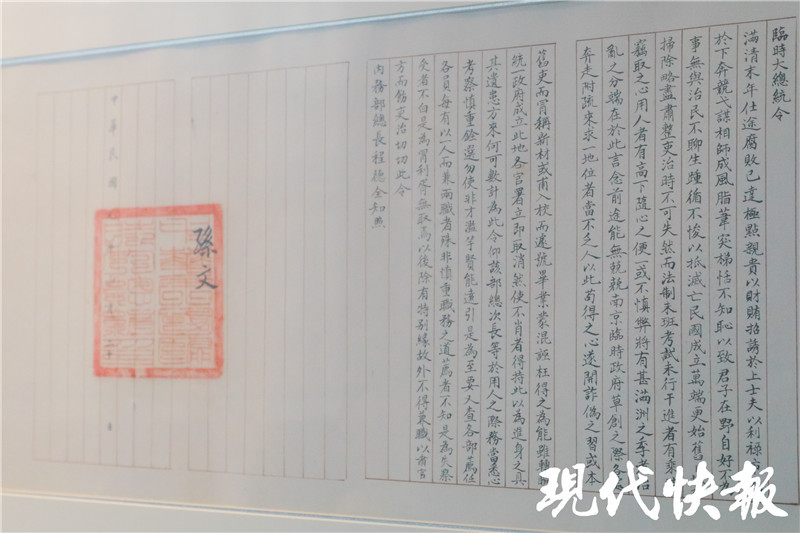 臨時大總統令
滿清末年仕途腐敗已達極點親貴以財賄招誘於上士夫以利祿
於下奔競弋謀相師成風脂韋突梯恬不知恥以致君子在野自好不為
事無與治民不聊生踵循不悛以抵滅亡民國成立萬端更始舊
掃除略盡肅整吏治時不可失然而法制未頒考試未行干進者有乘
竊取之心用人者有高下隨心之便一或不慎弊將有甚滿洲之季者治
亂之分端在於此言念前途能無兢兢南京臨時政府草創之際
奔走附疏來求一地位者當不乏人以此苟得之心遂開詐偽之習或本
舊吏而冒稱新材或甫入校而遽號畢業蒙混誑枉得之為能雖轉瞬
統一政府成立此地各官署立即取消然使不肖者得持此以為進身之具
其遺患方來何可數計為此令仰該部總次長等於用人之際務當悉心
考察慎重銓選勿使非才濫竽賢能遠引是為至要又查各部薦任
各員每有以一人而兼兩職者殊非慎重職務之道薦者不知是為失察
受者不白是為冒利胥無取焉以後除有特別緣故外不得兼職以肅官
方而飭吏治切切此令
內務部總長程德全知照
孫文
中華民國
現代快報